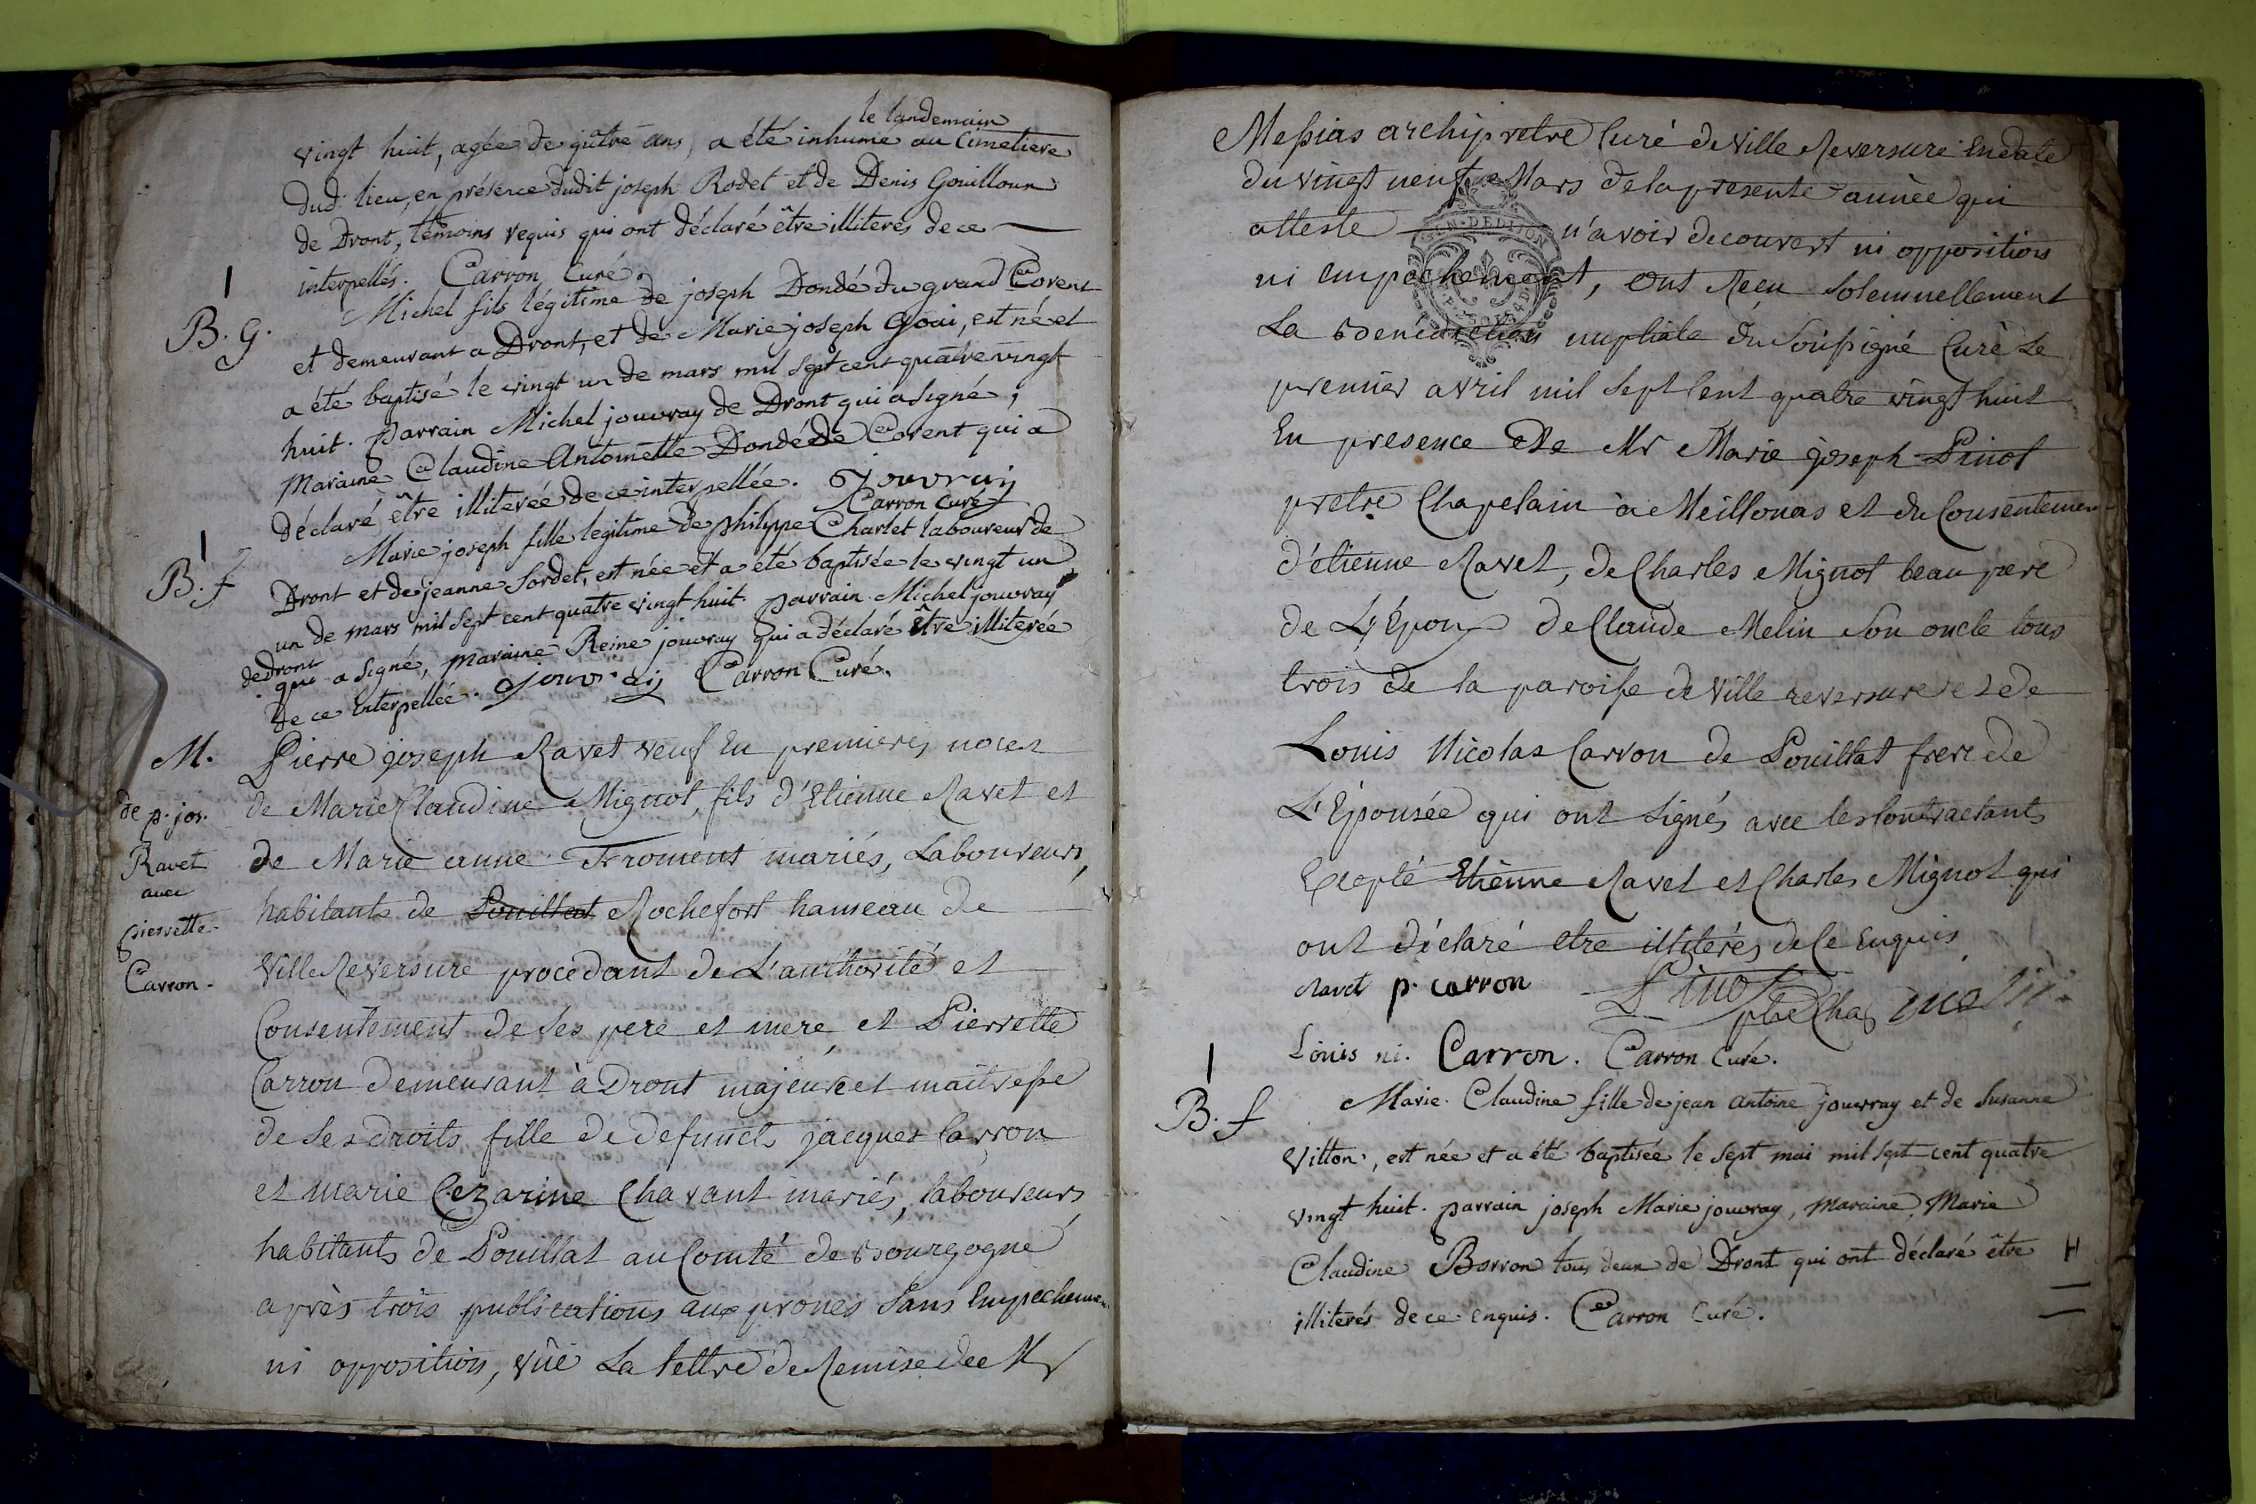 le landemain
vingt huit, agée de quâtre ans, a été inhumé au Cimetiere
dud. lieu, en présence dudit joseph Rodet et de Denis Gouilloux
de Dront, témoins requis qui ont déclaré être illiterés de ce
interpellés. Carron Curé.
B. g.
Michel fils légitime de joseph Dondé du grand Corent
et demeurant a Dront, et de Marie joseph Goai, est né et
a été baptisé le vingt un de mars mil sept cent quatre vingt
huit. parrain Michel jouvray de Dront qui a signé,
maraine Claudine Antoinette Dondé de Corent qui a
déclaré être illiterée de ce interpellée. Jouvray
Carron curé
B. f
Marie joseph fille legitime de philippe Charlet laboureur de
Dront et de jeanne Sordet, est née et a été baptisée le vingt un
un de mars mil sept cent quatre vingt huit. parrain Michel jouvray
de Dront
qui a signé, maraine Reine jouvray qui a déclaré être illiterée
de ce interpellée. Jouvray Carron Curé.
M.
de p. jos.
Ravet
avec
pierrette
Carron.
Pierre joseph Ravet veuf En premieres noces
de Marie Claudine Mignot, fils d'Etienne Ravet et
de Marie anne Froment mariés, Laboureurs,
habitants de Pouillat Rochefort hameau de
Ville Reversure procedant de L'authorité et
Consentement de ses pere et mere, et Pierrette
Carron demeurant à Dront majeure et maitresse
de ses droits fille de defuncts jacques Carron
et marie Cezarine Chavant mariés, laboureurs
habitants de Pouillat au Comté de Bourgogne
après trois publications aux prones sans Empechement
ni opposition, vüe La lettre de Remise de Mr
Messias archipretre Curé de Ville Reversure En date
du vingt neuf Mars de la presente année qui
atteste n'avoir decouvert ni opposition
ni empechement, ont Reçu solemnellement
La Benediction nuptiale du Soussigné Curé Le
premier avril mil sept Cent quatre vingt huit
En presence De Mr Marie joseph Pinot
pretre Chapelain à Meillonas et du Consentement
d'étienne Ravet, de Charles Mignot beau pere
de L'Epoux de Claude Melin Son oncle tous
trois de la paroisse de Ville reversure et de
Louis Nicolas Carron de Pouillat frere de
L'Epousée qui ont signés avec les Contractants
Excepté Etienne Ravet et Charles Mignot qui
ont déclaré etre illiterés de Ce Enquis
Ravet p. carron Pinot ptre Chap melin
Louis ni. Carron. Carron Curé.
B. f
Marie Claudine fille de jean antoine jouvray et de Susanne
Vitton, est née et a été baptisée le sept mai mil sept cent quatre
vingt huit. parrain joseph Marie jouvray, maraine Marie
Claudine Borron tous deux de Dront qui ont déclaré être
illiterés de ce enquis. Carron Curé.